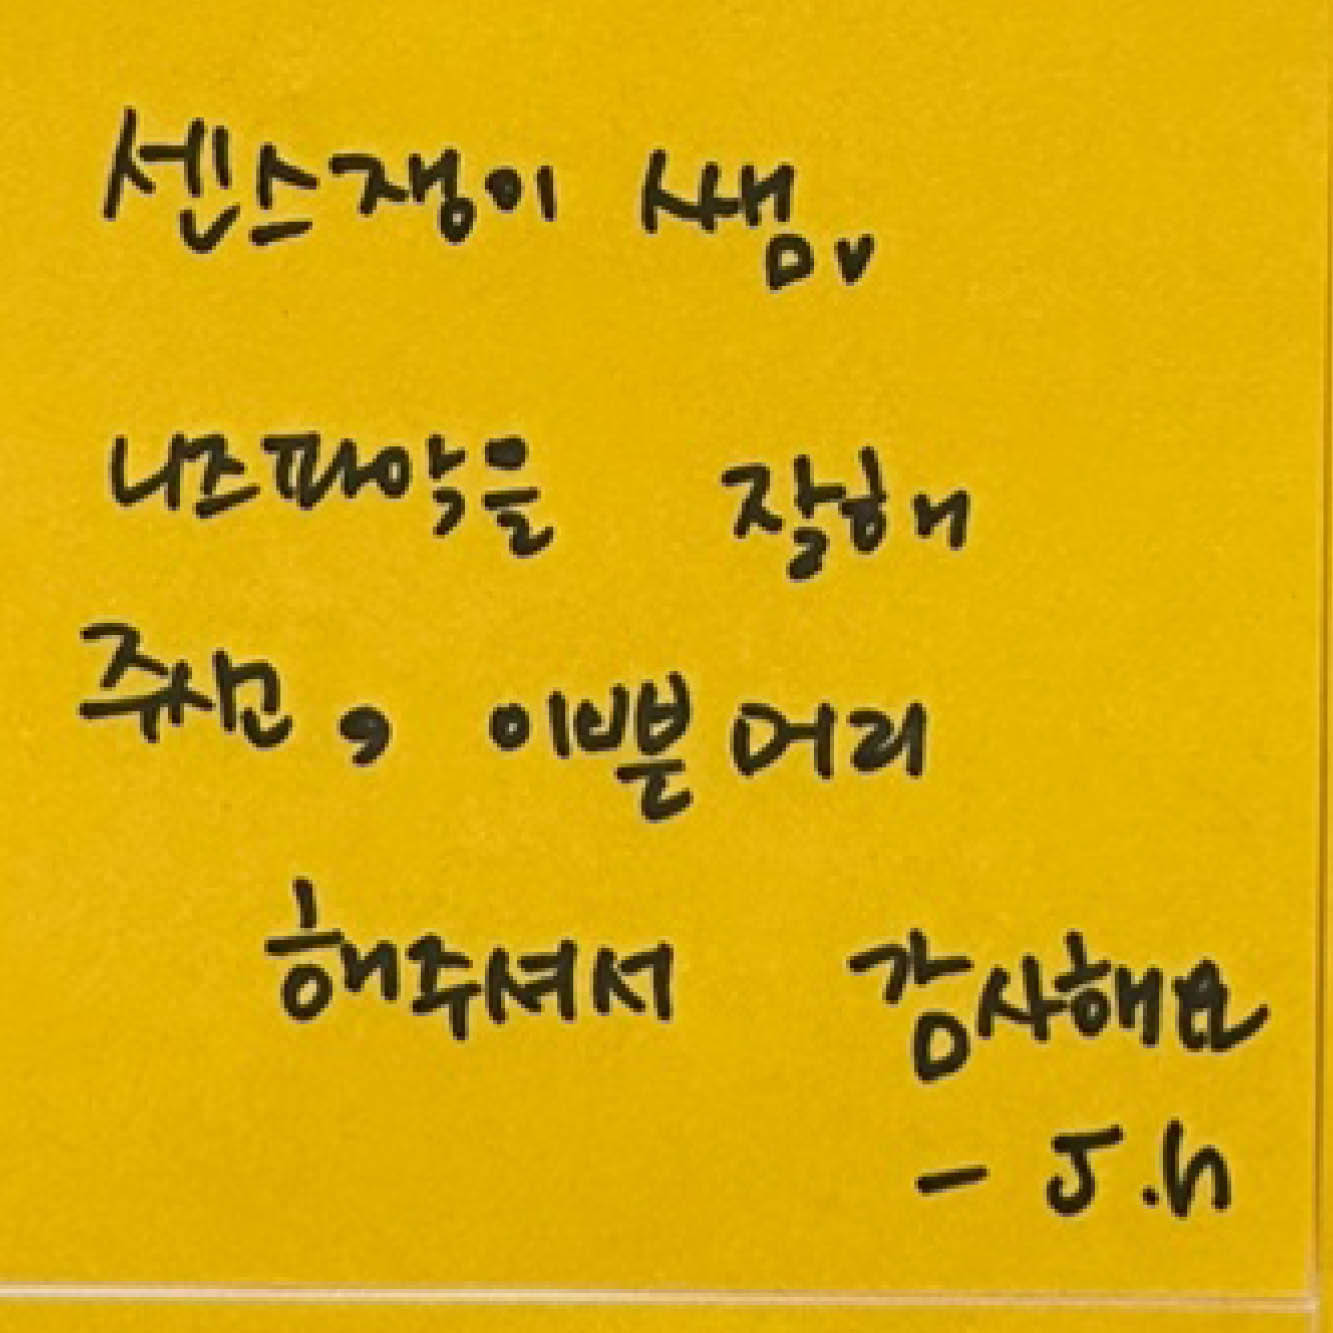 센스쟁이 쌤♥
니즈파악을 잘해
주시고, 이쁜머리
해주셔서 감사해요
- J.h